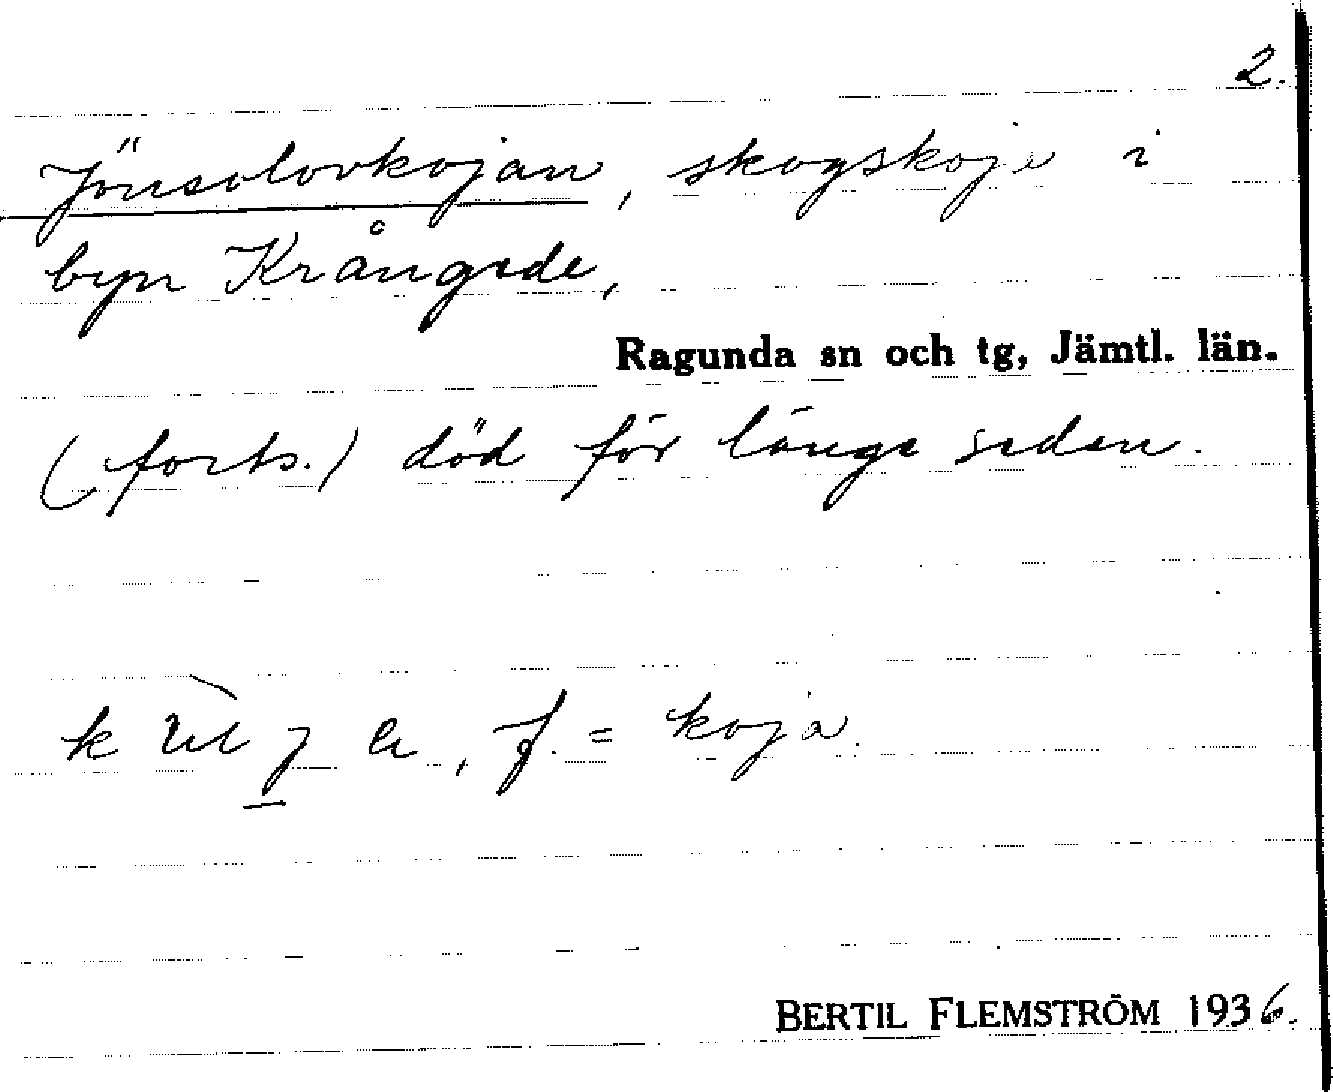 2.
Jönsolovkojan, skogskoja i
byn Krångede,
Ragunda sn och tg, Jämtl. län.
(forts.) död för länge sedan.
f. = koja.
BERTIL FLEMSTRÖM 1936.